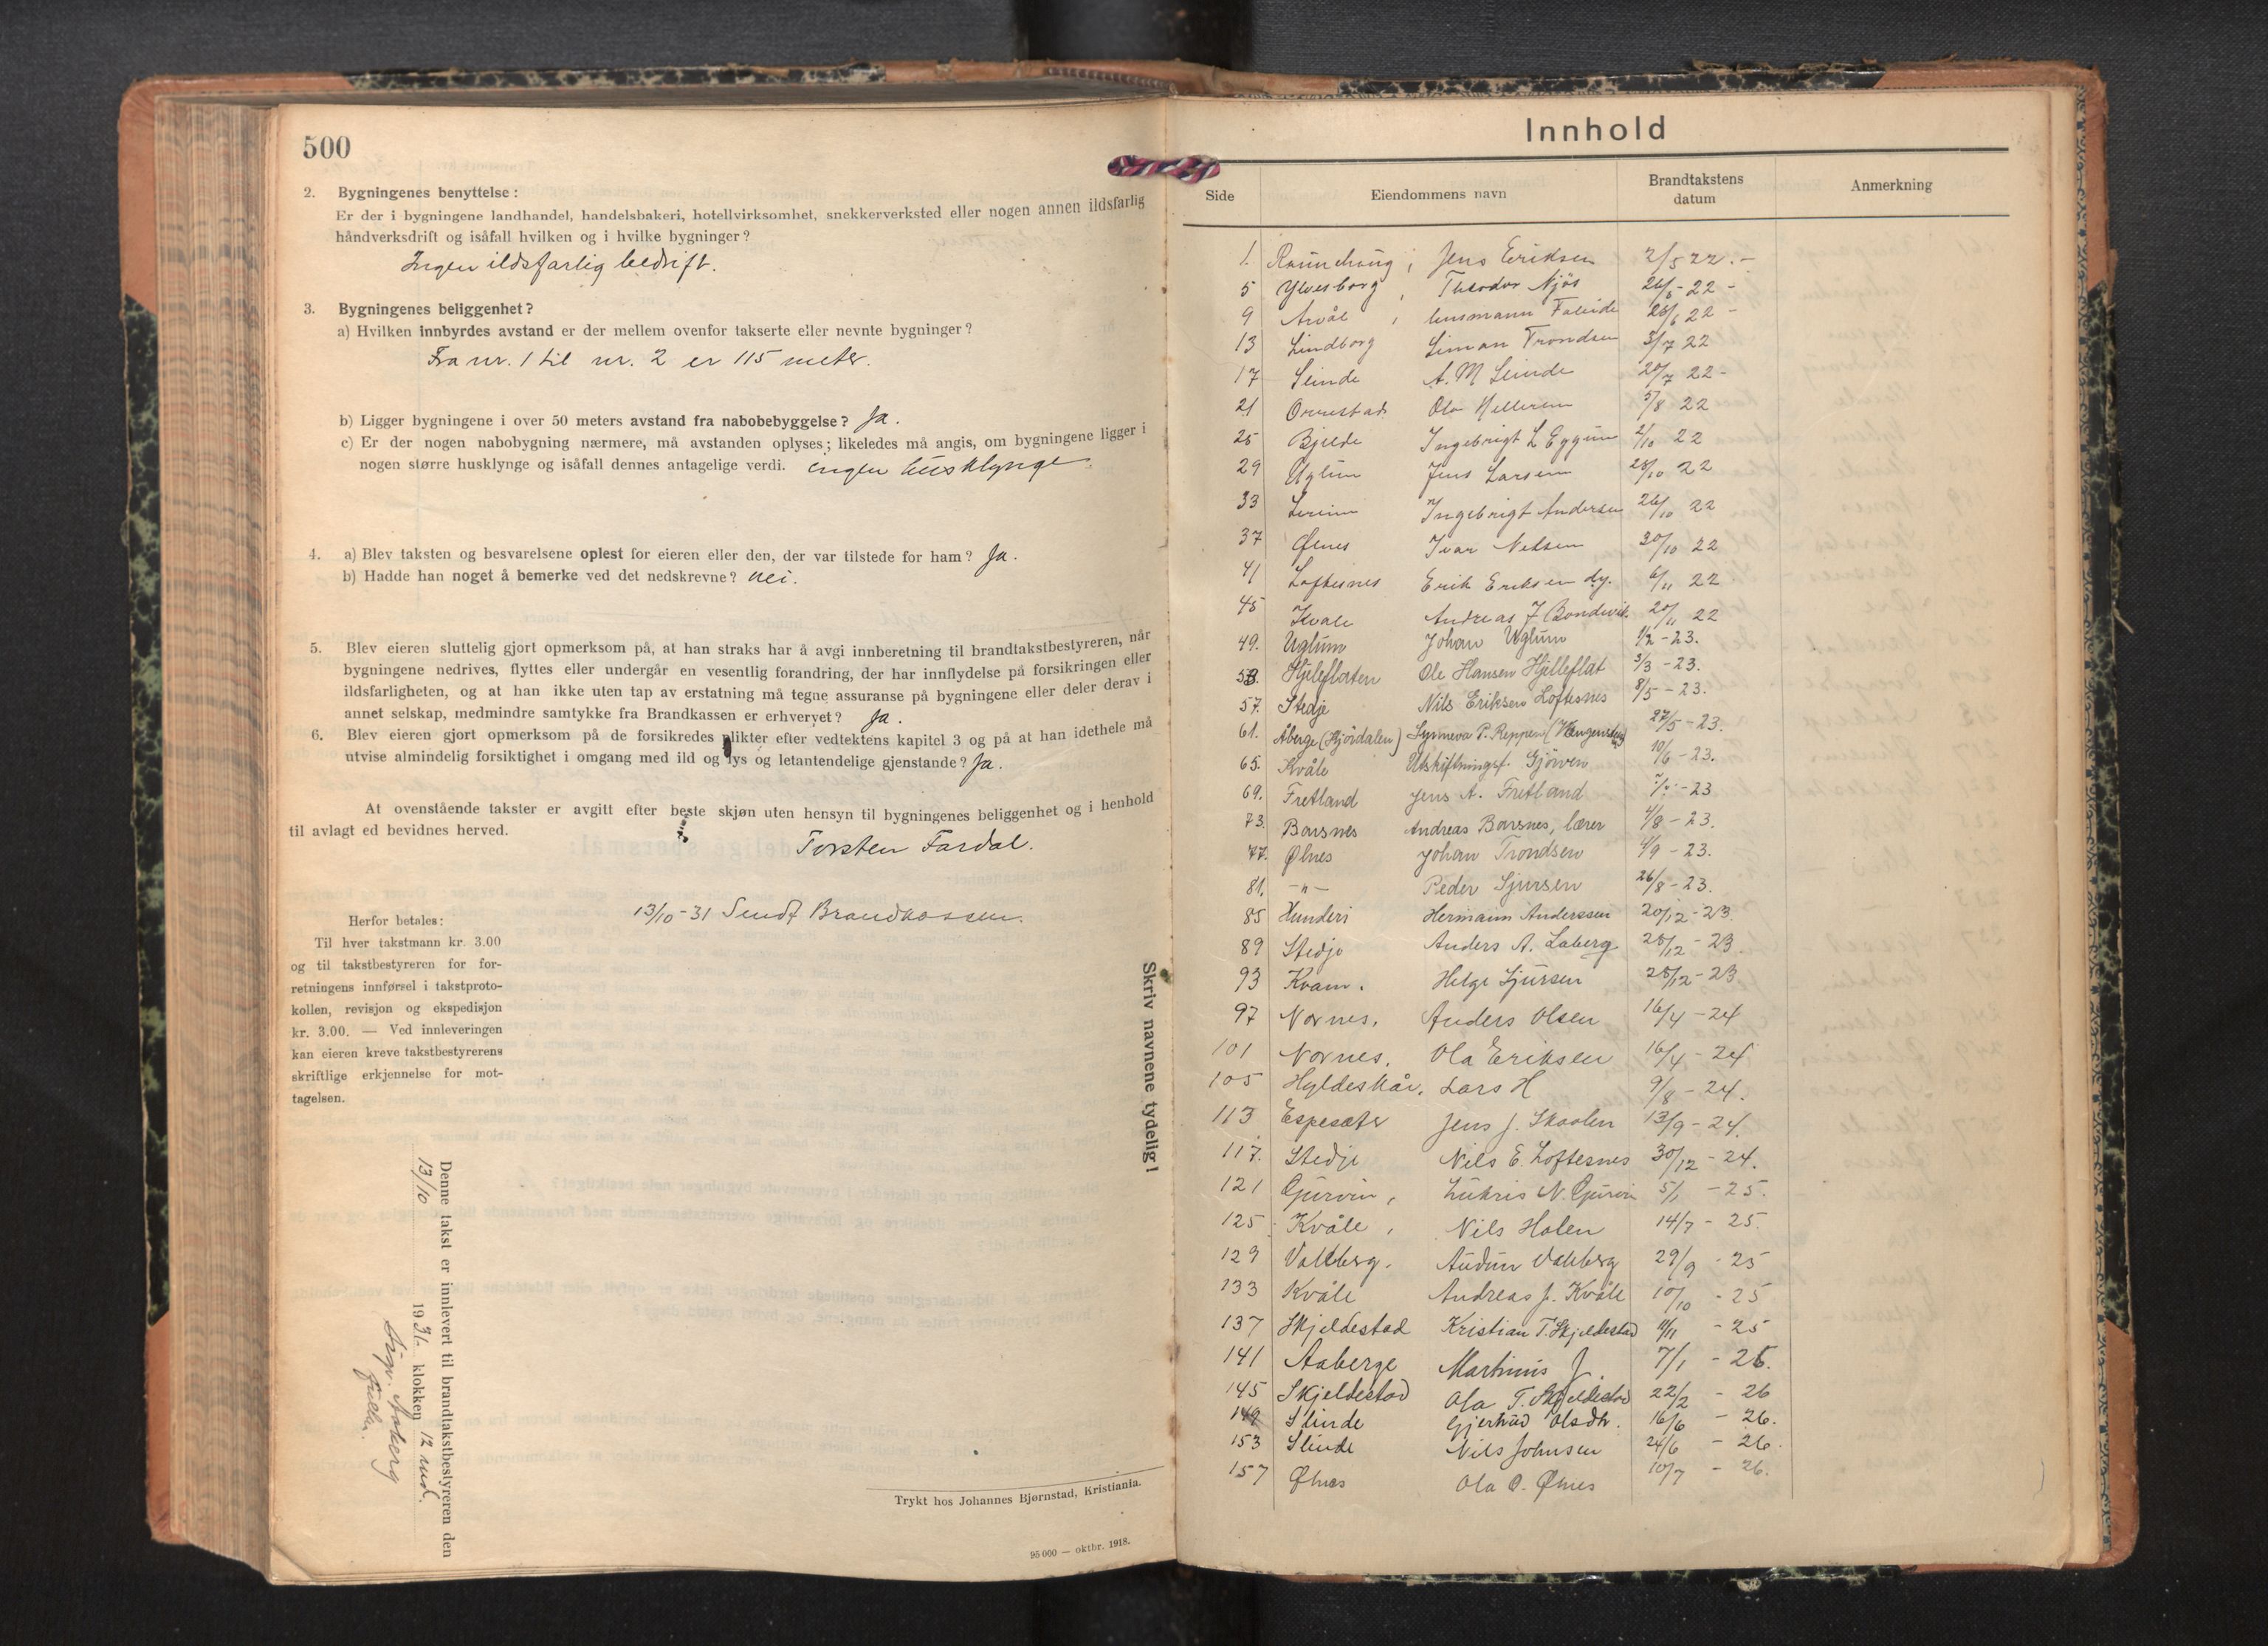 500
2. Bygningenes benyttelse:
Er der i bygningene landhandel, handelsbakeri, hotellvirksomhet, snekkerverksted eller nogen annen ildsfarlig
håndverksdrift og isåfall hvilken og i hvilke bygninger?
Ingen ildsfarlig bedrift.
3. Bygningenes beliggenhet?
a) Hvilken innbyrdes avstand er der mellem ovenfor takserte eller nevnte bygninger?
Fra nr. 1 til nr. 2 er 115 meter.
b) Ligger bygningene i over 50 meters avstand fra nabobebyggelse? Ja.
c) Er der nogen nabobygning nærmere, må avstanden oplyses; likeledes må angis, om bygningene ligger i
nogen større husklynge og isåfall dennes antagelige verdi. ingen husklynge.
4. a) Blev taksten og besvarelsene oplest for eieren eller den, der var tilstede for ham? Ja.
b) Hadde han noget å bemerke ved det nedskrevne? nei.
5. Blev eieren sluttelig gjort opmerksom på, at han straks har å avgi innberetning til brandtakstbestyreren, når
bygningene nedrives, flyttes eller undergår en vesentlig forandring, der har innflydelse på forsikringen eller
ildsfarligheten, og at han ikke uten tap av erstatning må tegne assuranse på bygningene eller deler derav i
annet selskap, medmindre samtykke fra Brandkassen er erhvervet? Ja.
6. Blev eieren gjort opmerksom på de forsikredes plikter efter vedtektens kapitel 3 og på at han idethele må
utvise almindelig forsiktighet i omgang med ild og lys og letantendelige gjenstande? Ja.
At ovenstående takster er avgitt efter beste skjøn uten hensyn til bygningenes beliggenhet og i henhold
til avlagt ed bevidnes herved.
Torsten Fardal.
13/10-31 Sendt Brandkassen.
Herfor betales:
Til hver takstmann kr. 3.00
og til takstbestyreren for for-
retningens innførsel i takstproto-
kollen, revisjon og ekspedisjon
kr. 3.00. — Ved innleveringen
kan eieren kreve takstbestyrerens
skriftlige erkjennelse for mot-
tagelsen.
Skriv navnene tydelig!
Denne takst er innlevert til brandtakstbestyreren den
13/10 1931. klokken 12 mid.
Sign. Aaberg
Trykt hos Johannes Bjørnstad, Kristiania.
95 000 — oktbr. 1918.
Innhold
Side Eiendommens navn Brandtakstens datum Anmerkning
1. Jens Eriksen 2/5 22.-
5 Ylvesborg, Theodor Njøs 26/5-22-
9 Arvål, Husmann Faleide 28/6 22-
13 Lindborg Simon Trondsen 3/7 22
17 Slinde A. M Slinde 20/7 22-
21 Ormestad Ola Hellerem 5/8 22
25 Bjelde Ingebrigt L Eggum 2/10 22
29 Uglum Jens Larsen 28/10 22
33 Lerum Ingebrigt Andersen 26/10 22
37 Ølnes Ivar Nilsen 30/10 22
41 Loftesnes Erik Eriksen dy. 6/11 22
45 Kvale Andreas J Bondevik. 20/11 22
49. Uglum Johan Uglum 1/2-23.
53. Hjelleflaten Ole Hansen Hjelleflat 3/3-23.
57. Stedje Nils Eriksen Loftesnes 8/5-23.
61. Åberge (Hjørdalen) Synneva P. Reppen 27/5-23.
65. Kvåle Utskiftningsf. Gjørven 10/6-23.
69. Fretland Jens A. Fretland -23
73. Barsnes Andreas Barsnes, lærer 4/8-23.
77. Ølnes Johan Trondsen 4/9-23.
81. -"- Peder Sjursen 26/8-23.
85 Hunderi Hermann Anderssen 20/12-23.
89 Stedje Anders A. Laberg 28/12-23.
93 Kvam. Helge Sjursen 28/12-23
97 Nornes. Anders Olsen 16/4-24
101 Nornes. Ola Eriksen 16/4-24
105 Hyldeskår. Lars H 9/8-24.
113 Espesæter Jens J. Skaalen 13/9-24.
117. Stedje Nils E. Loftesnes 30/12-24.
121 Gjurvin, N. Gjurvin 5/1-25.
125 Kvåle, Nils Halen 14/7-25.
129 Valeberg. Audun Valeberg 29/9-25
133 Kvåle Andreas J. Kvåle 10/10-25
137 Skjeldestad Kristian T. Skjeldestad 11/11-25
141 Aaberge Martinus J. 7/1-26.
145 Skjeldestad Ola T. Skjeldestad 22/2-26
149 Slinde Gjertrud Olsdtr. 16/6-26.
153 Slinde Nils Johnsen 24/6-26.
157 Ølnes Ola O. Ølnes 10/7-26.